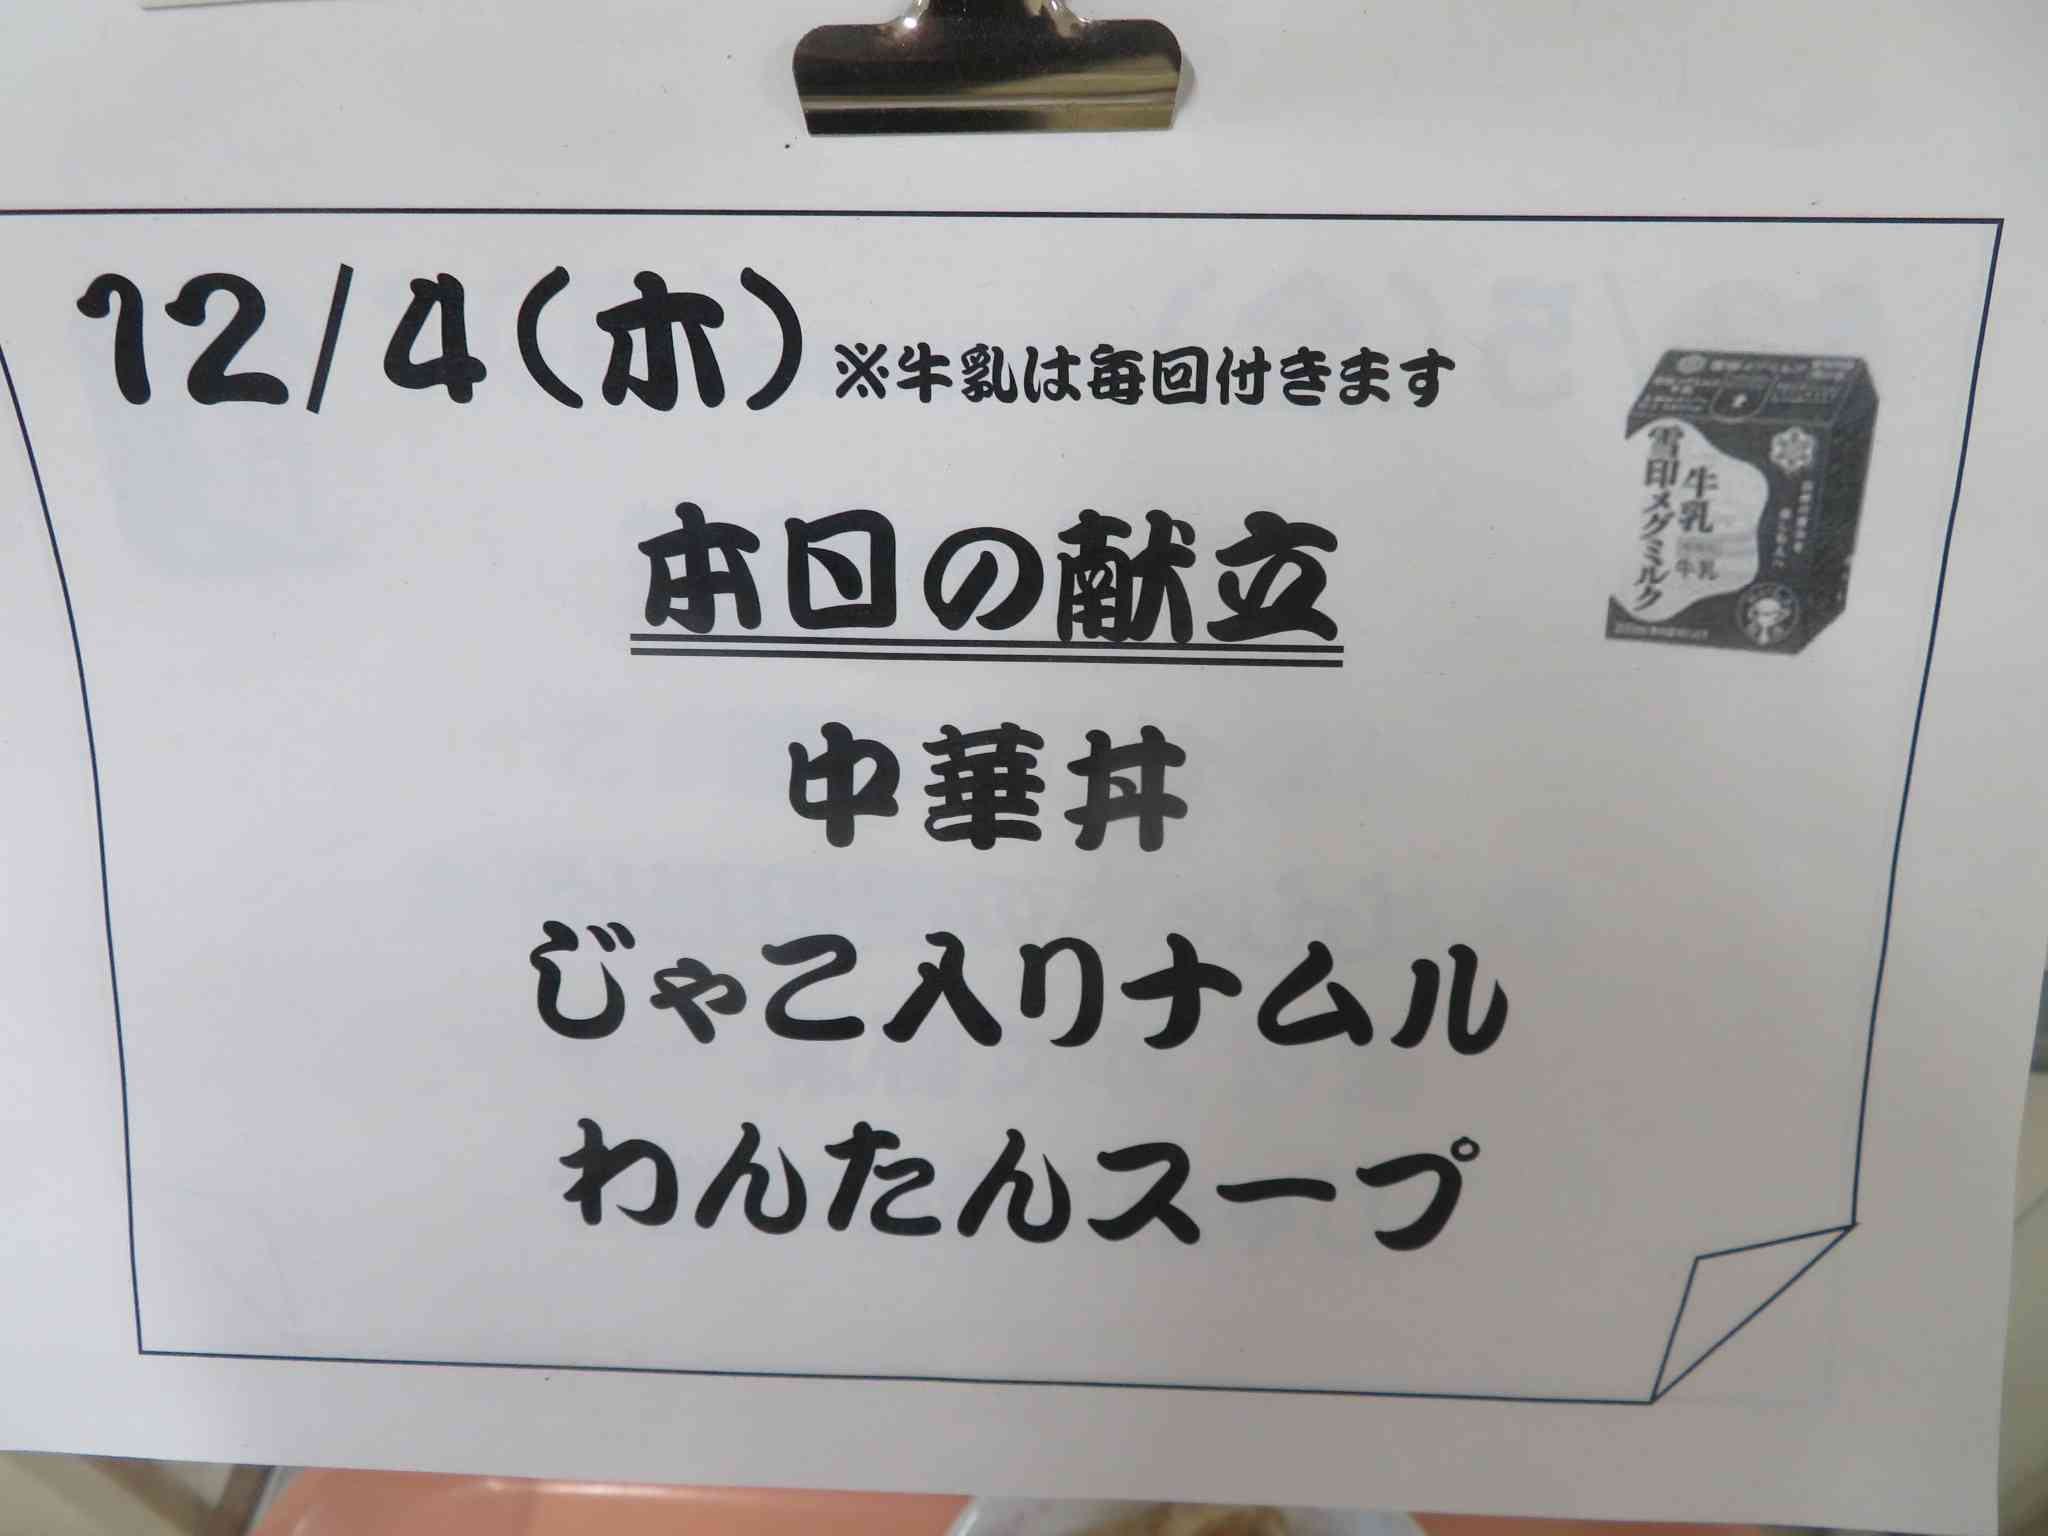 12/4(木) ※牛乳は毎回付きます
本日の献立
中華丼
じゃこ入りナムル
わんたんスープ
牛乳
雪印メグミルク
牛乳